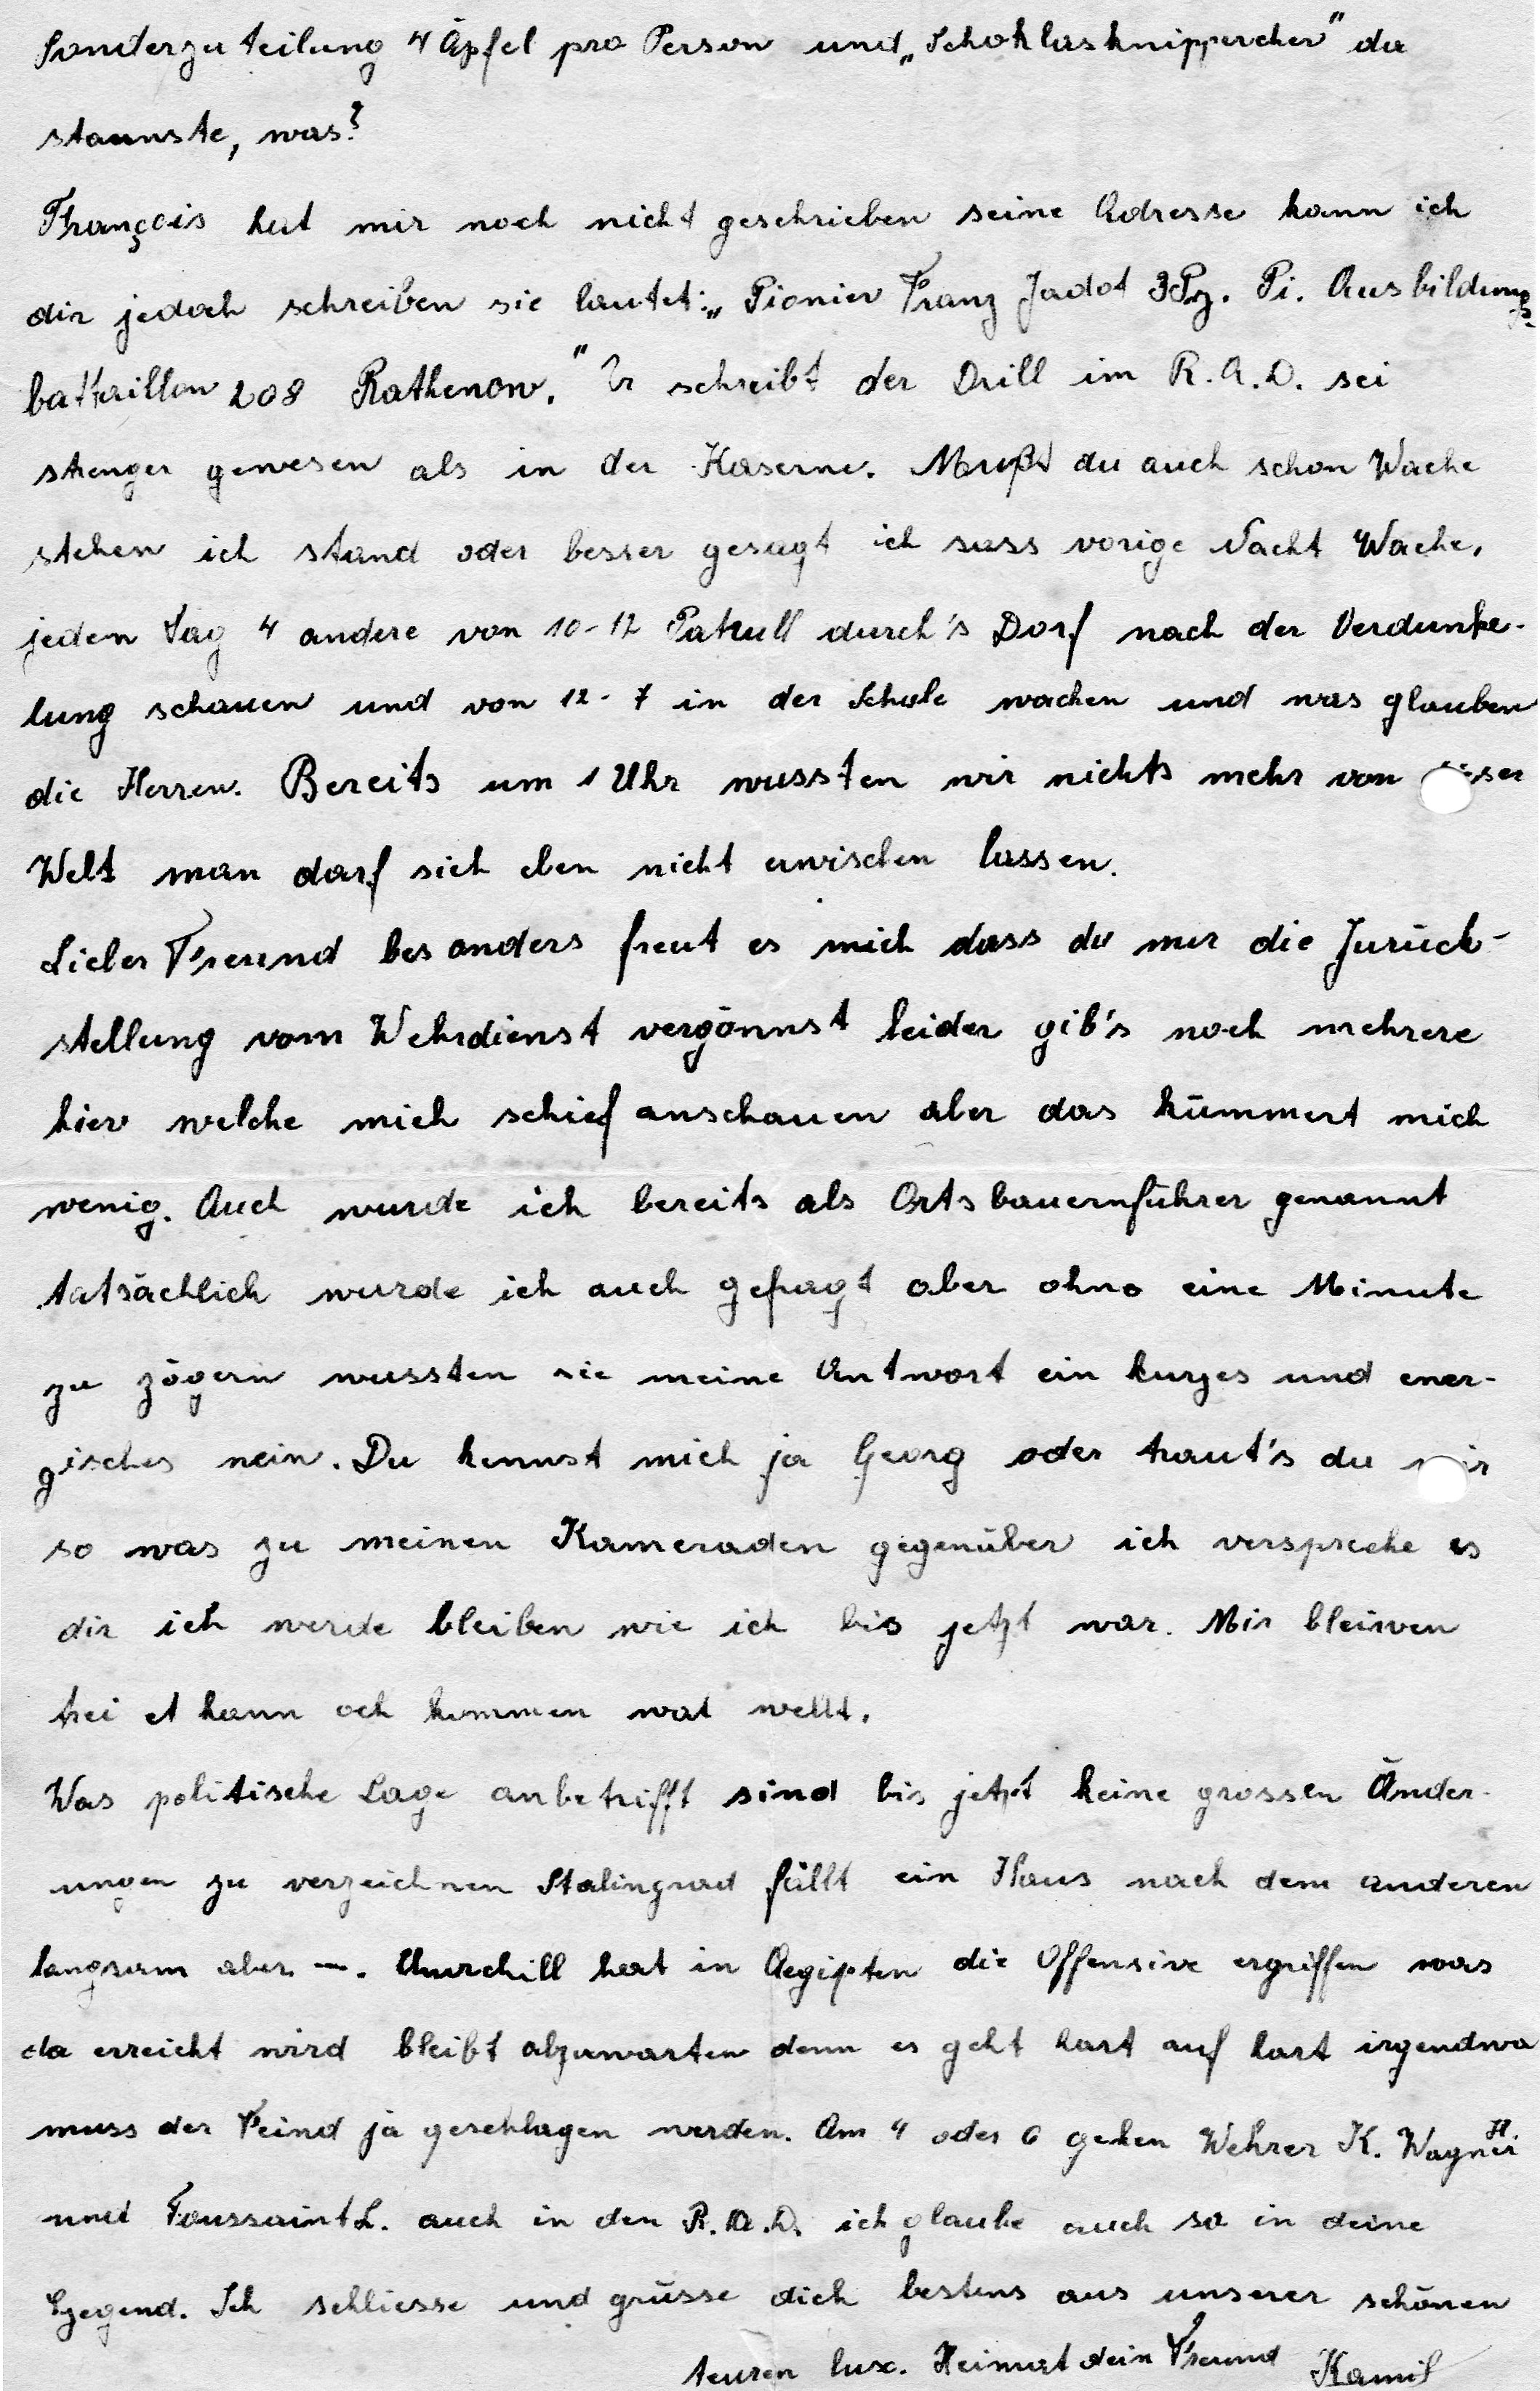 Sonderzuteilung 4 Äpfel pro Person und „Schoklasknippercher" da
staunste, was?
François hat mir noch nicht geschrieben seine Adresse kann ich
dir jedoch schreiben sie lautet: „Pionier Franz Jadot 3 Pz. Pi. Ausbildungs-
battaillon 208 Rathenow." Er schreibt der Drill im R.A.D. sei
strenger gewesen als in der Kaserne. Mußt du auch schon Wache
stehen ich stand oder besser gesagt ich sass vorige Nacht Wache,
jeden Tag 4 andere von 10-12 Patrull durch's Dorf nach der Verdunke-
lung schauen und von 12-7 in der Schule wachen und was glauben
die Herren. Bereits um 1 Uhr wussten wir nichts mehr von dieser
Welt man darf sich eben nicht erwischen lassen.
Lieber Freund besonders freut es mich dass du mir die Zurück-
stellung vom Wehrdienst vergönnst leider gib's noch mehrere
hier welche mich schief anschauen aber das kümmert mich
wenig. Auch wurde ich bereits als Ortsbauernführer genannt
tatsächlich wurde ich auch gefragt aber ohne eine Minute
zu zögern wussten sie meine Antwort ein kurzes und ener-
gisches nein. Du kennst mich ja Georg oder traut's du mir
so was zu meinen Kameraden gegenüber ich verspreche es
dir ich werde bleiben wie ich bis jetzt war. Mir bleiwen
trei et kann och kommen wat wellt.
Was politische Lage anbetrifft sind bis jetzt keine grossen Änder-
ungen zu verzeichnen Stalingrad fällt ein Haus nach dem anderen
langsam aber —. Churchill hat in Aegipten die Offensive ergriffen was
da erreicht wird bleibt abzuwarten denn es geht hart auf hart irgendwo
muss der Feind ja geschlagen werden. Am 4 oder 6 gehen Wehrer K. Wagner H.
und Toussaint L. auch in den R.A.D. ich glaube auch so in deine
Gegend. Ich schliesse und grüsse dich bestens aus unserer schönen
teuren lux. Heimat dein Freund Kamil